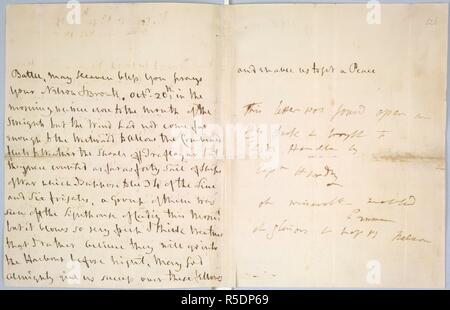 Battle, may Heaven bless you prays
your Nelson & Bronte, Octr. 20th in the
morning we were close to the mouth of the
Streights but the Wind had not come far
enough to the Westward to allow the Combined
Fleets to weather the Shoals of Traflagar but
they were counted as far as forty Sail of Ships
of War which I suppose to be 34 of the Line
and Six frigates, a group of them was
seen off the Lighthouse of Cadiz this Morng
but it blows so very fresh I think
that I rather believe they will go into
the Harbour before night, May God
Almighty give us success over these fellows
and enable us to get a Peace
This letter was found open on
his Desk & brought to
Lady Hamilton by
Captn Hardy
oh miserable wretched
Emma
oh glorious & happy Nelson
alamy
Image ID: R5DP69
www.alamy.com